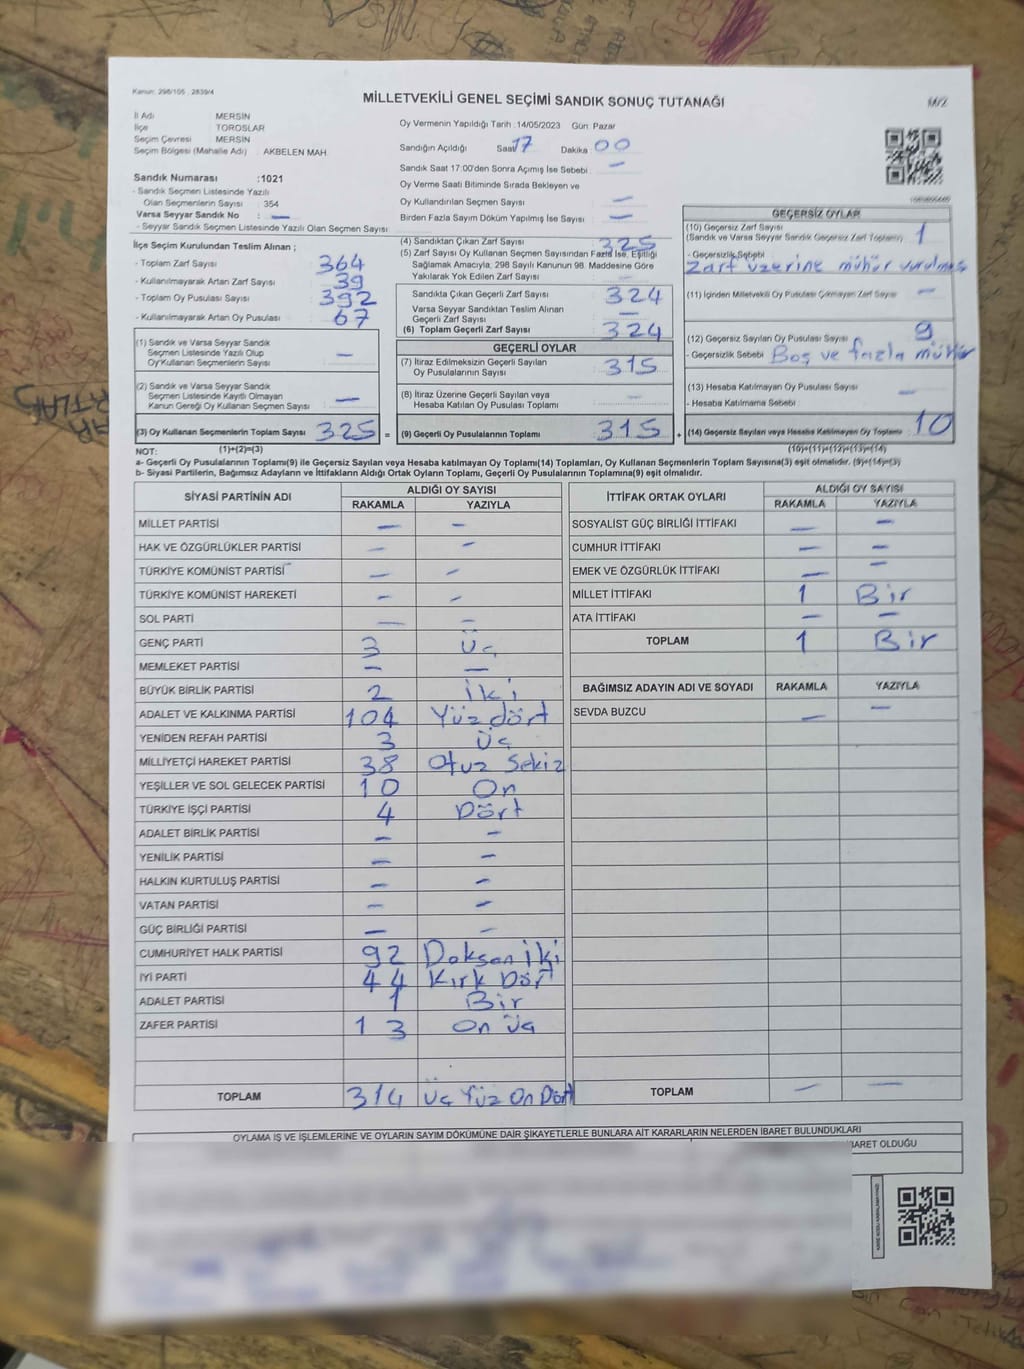 Kanun: 298/105 , 2839/4
MİLLETVEKİLİ GENEL SEÇİMİ SANDIK SONUÇ TUTANAĞI
M/2
İl Adı MERSİN
İlçe TOROSLAR
Seçim Çevresi MERSİN
Seçim Bölgesi (Mahalle Adı) : AKBELEN MAH.
Sandık Numarası :1021
- Sandık Seçmen Listesinde Yazılı
Olan Seçmenlerin Sayısı : 354
Varsa Seyyar Sandık No : —
- Seyyar Sandık Seçmen Listesinde Yazılı Olan Seçmen Sayısı
Oy Vermenin Yapıldığı Tarih : 14/05/2023 Gün: Pazar
Sandığın Açıldığı Saat 17 Dakika : 00
Sandık Saat 17:00'den Sonra Açımış İse Sebebi : —
Oy Verme Saati Bitiminde Sırada Bekleyen ve
Oy Kullandırılan Seçmen Sayısı : —
Birden Fazla Sayım Döküm Yapılmış İse Sayısı : —
İlçe Seçim Kurulundan Teslim Alınan ;
- Toplam Zarf Sayısı : 364
- Kullanılmayarak Artan Zarf Sayısı : 39
- Toplam Oy Pusulası Sayısı : 392
- Kullanılmayarak Artan Oy Pusulası : 67
(1) Sandık ve Varsa Seyyar Sandık
Seçmen Listesinde Yazılı Olup
Oy Kullanan Seçmenlerin Sayısı —
(2) Sandık ve Varsa Seyyar Sandık
Seçmen Listesinde Kayıtlı Olmayan
Kanun Gereği Oy Kullanan Seçmen Sayısı —
(3) Oy Kullanan Seçmenlerin Toplam Sayısı 325 =
(1)+(2)=(3)
(4) Sandıktan Çıkan Zarf Sayısı : 325
(5) Zarf Sayısı Oy Kullanan Seçmen Sayısından Fazla İse, Eşitliği
Sağlamak Amacıyla, 298 Sayılı Kanunun 98. Maddesine Göre
Yakılarak Yok Edilen Zarf Sayısı :
Sandıkta Çıkan Geçerli Zarf Sayısı 324
Varsa Seyyar Sandıktan Teslim Alınan
Geçerli Zarf Sayısı —
(6) Toplam Geçerli Zarf Sayısı 324
GEÇERLİ OYLAR
(7) İtiraz Edilmeksizin Geçerli Sayılan
Oy Pusulalarının Sayısı : 315
(8) İtiraz Üzerine Geçerli Sayılan veya
Hesaba Katılan Oy Pusulası Toplamı :
(9) Geçerli Oy Pusulalarının Toplamı 315 +
GEÇERSİZ OYLAR
(10) Geçersiz Zarf Sayısı 1
(Sandık ve Varsa Seyyar Sandık Geçersiz Zarf Toplamı)
- Geçersizlik Sebebi :
Zarf üzerine mühür vurulması
(11) İçinden Milletvekili Oy Pusulası Çıkmayan Zarf Sayısı —
(12) Geçersiz Sayılan Oy Pusulası Sayısı : 9
- Geçersizlik Sebebi : Boş ve fazla mühür
(13) Hesaba Katılmayan Oy Pusulası Sayısı —
- Hesaba Katılmama Sebebi :
(14) Geçersiz Sayılan veya Hesaba Katılmayan Oy Toplamı : 10
(10)+(11)+(12)+(13)=(14)
NOT:
a- Geçerli Oy Pusulalarının Toplamı(9) ile Geçersiz Sayılan veya Hesaba katılmayan Oy Toplamı(14) Toplamları, Oy Kullanan Seçmenlerin Toplam Sayısına(3) eşit olmalıdır. (9)+(14)=(3)
b- Siyasi Partilerin, Bağımsız Adayların ve İttifakların Aldığı Ortak Oyların Toplamı, Geçerli Oy Pusulalarının Toplamına(9) eşit olmalıdır.
SİYASİ PARTİNİN ADI ALDIĞI OY SAYISI
RAKAMLA YAZIYLA
MİLLET PARTİSİ — —
HAK VE ÖZGÜRLÜKLER PARTİSİ — —
TÜRKİYE KOMÜNİST PARTİSİ — —
TÜRKİYE KOMÜNİST HAREKETİ — —
SOL PARTİ — —
GENÇ PARTİ 3 Üç
MEMLEKET PARTİSİ — —
BÜYÜK BİRLİK PARTİSİ 2 İki
ADALET VE KALKINMA PARTİSİ 104 Yüz dört
YENİDEN REFAH PARTİSİ 3 Üç
MİLLİYETÇİ HAREKET PARTİSİ 38 Otuz Sekiz
YEŞİLLER VE SOL GELECEK PARTİSİ 10 On
TÜRKİYE İŞÇİ PARTİSİ 4 Dört
ADALET BİRLİK PARTİSİ — —
YENİLİK PARTİSİ — —
HALKIN KURTULUŞ PARTİSİ — —
VATAN PARTİSİ — —
GÜÇ BİRLİĞİ PARTİSİ — —
CUMHURİYET HALK PARTİSİ 92 Doksan İki
İYİ PARTİ 44 Kırk Dört
ADALET PARTİSİ 1 Bir
ZAFER PARTİSİ 13 On Üç
TOPLAM 314 Üç Yüz On Dört
İTTİFAK ORTAK OYLARI ALDIĞI OY SAYISI
RAKAMLA YAZIYLA
SOSYALİST GÜÇ BİRLİĞİ İTTİFAKI — —
CUMHUR İTTİFAKI — —
EMEK VE ÖZGÜRLÜK İTTİFAKI — —
MİLLET İTTİFAKI 1 Bir
ATA İTTİFAKI — —
TOPLAM 1 Bir
BAĞIMSIZ ADAYIN ADI VE SOYADI RAKAMLA YAZIYLA
SEVDA BUZCU — —
TOPLAM — —
OYLAMA İŞ VE İŞLEMLERİNE VE OYLARIN SAYIM DÖKÜMÜNE DAİR ŞİKAYETLERLE BUNLARA AİT KARARLARIN NELERDEN İBARET BULUNDUKLARI
İBARET OLDUĞU